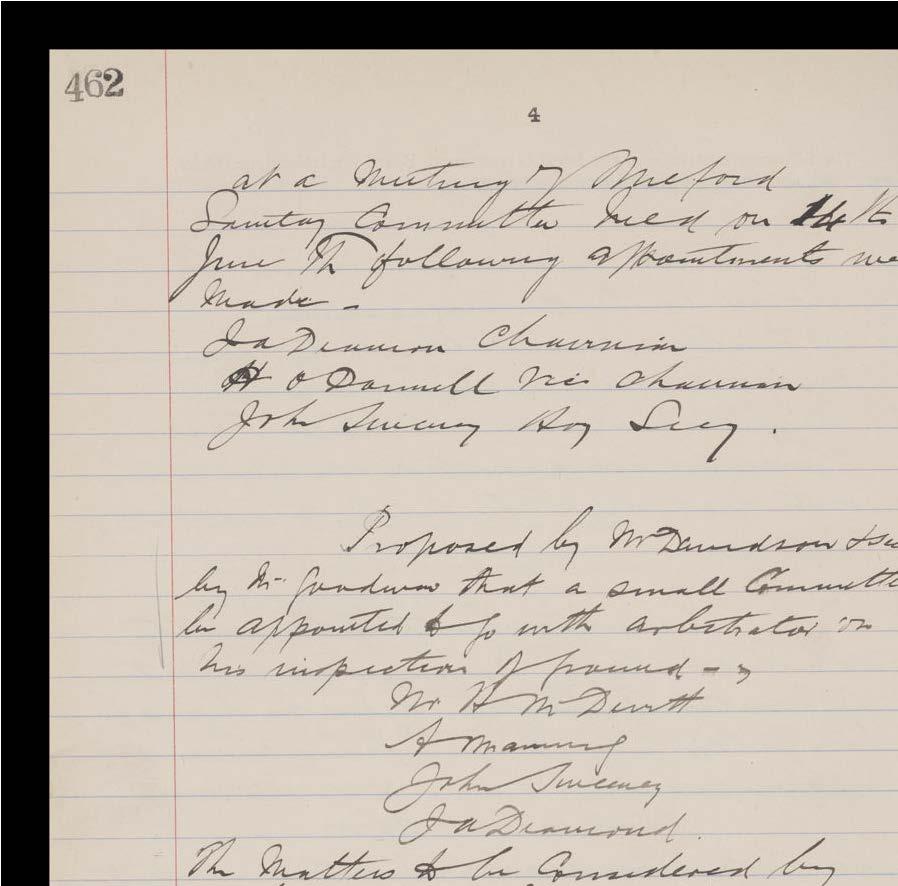 462
4
at a Meeting of Milford
Sanitary Committee held on 14th
June The following appointments we
Made -
J a Diamond Chairman
H O Donnell Vice Chairman
John Sweeney Hoy Secy.
Proposed by Mr Davidson & sec
by Mr. Goodwin that a small Committe
be appointed to go with arbitrator on
his inspection of ground -
Mr H McDevitt
A Manning
John Sweeney
J a Diamond.
The Matters to be Considered by